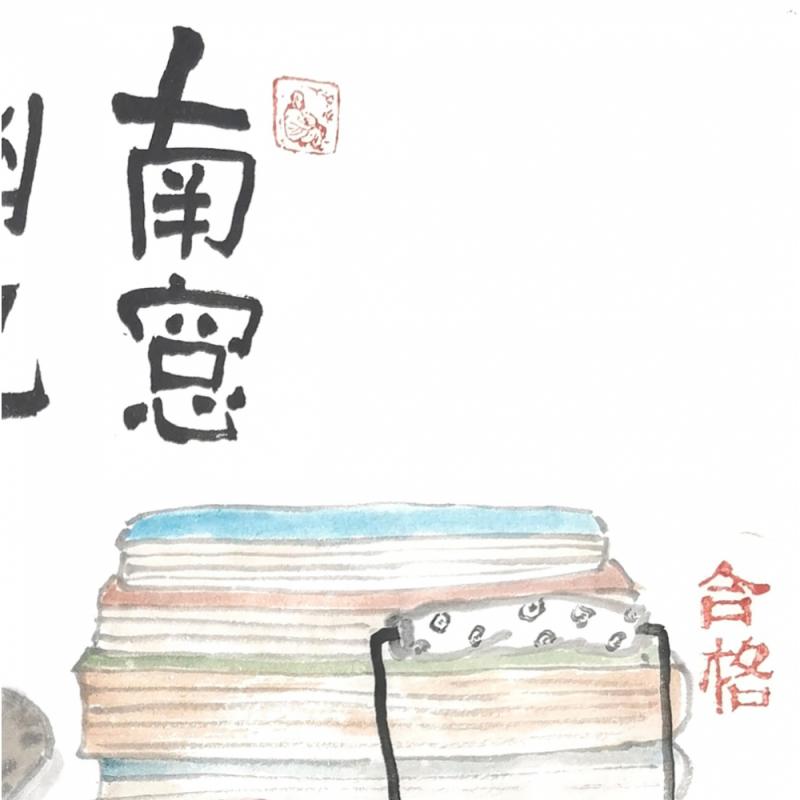 南窓
合格